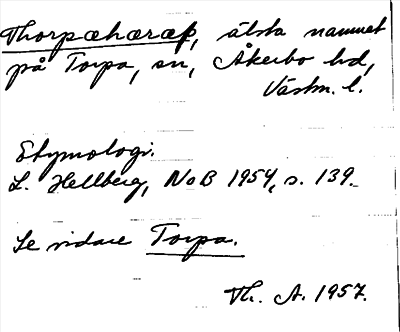 Thorpæhæræþ, älsta namnet
på Torpa, sn, Åkerbo hd,
Västm. l.
Etymologi.
L. Hellberg, NoB 1954, s. 139.
Se vidare Torpa.
Th. A. 1957.